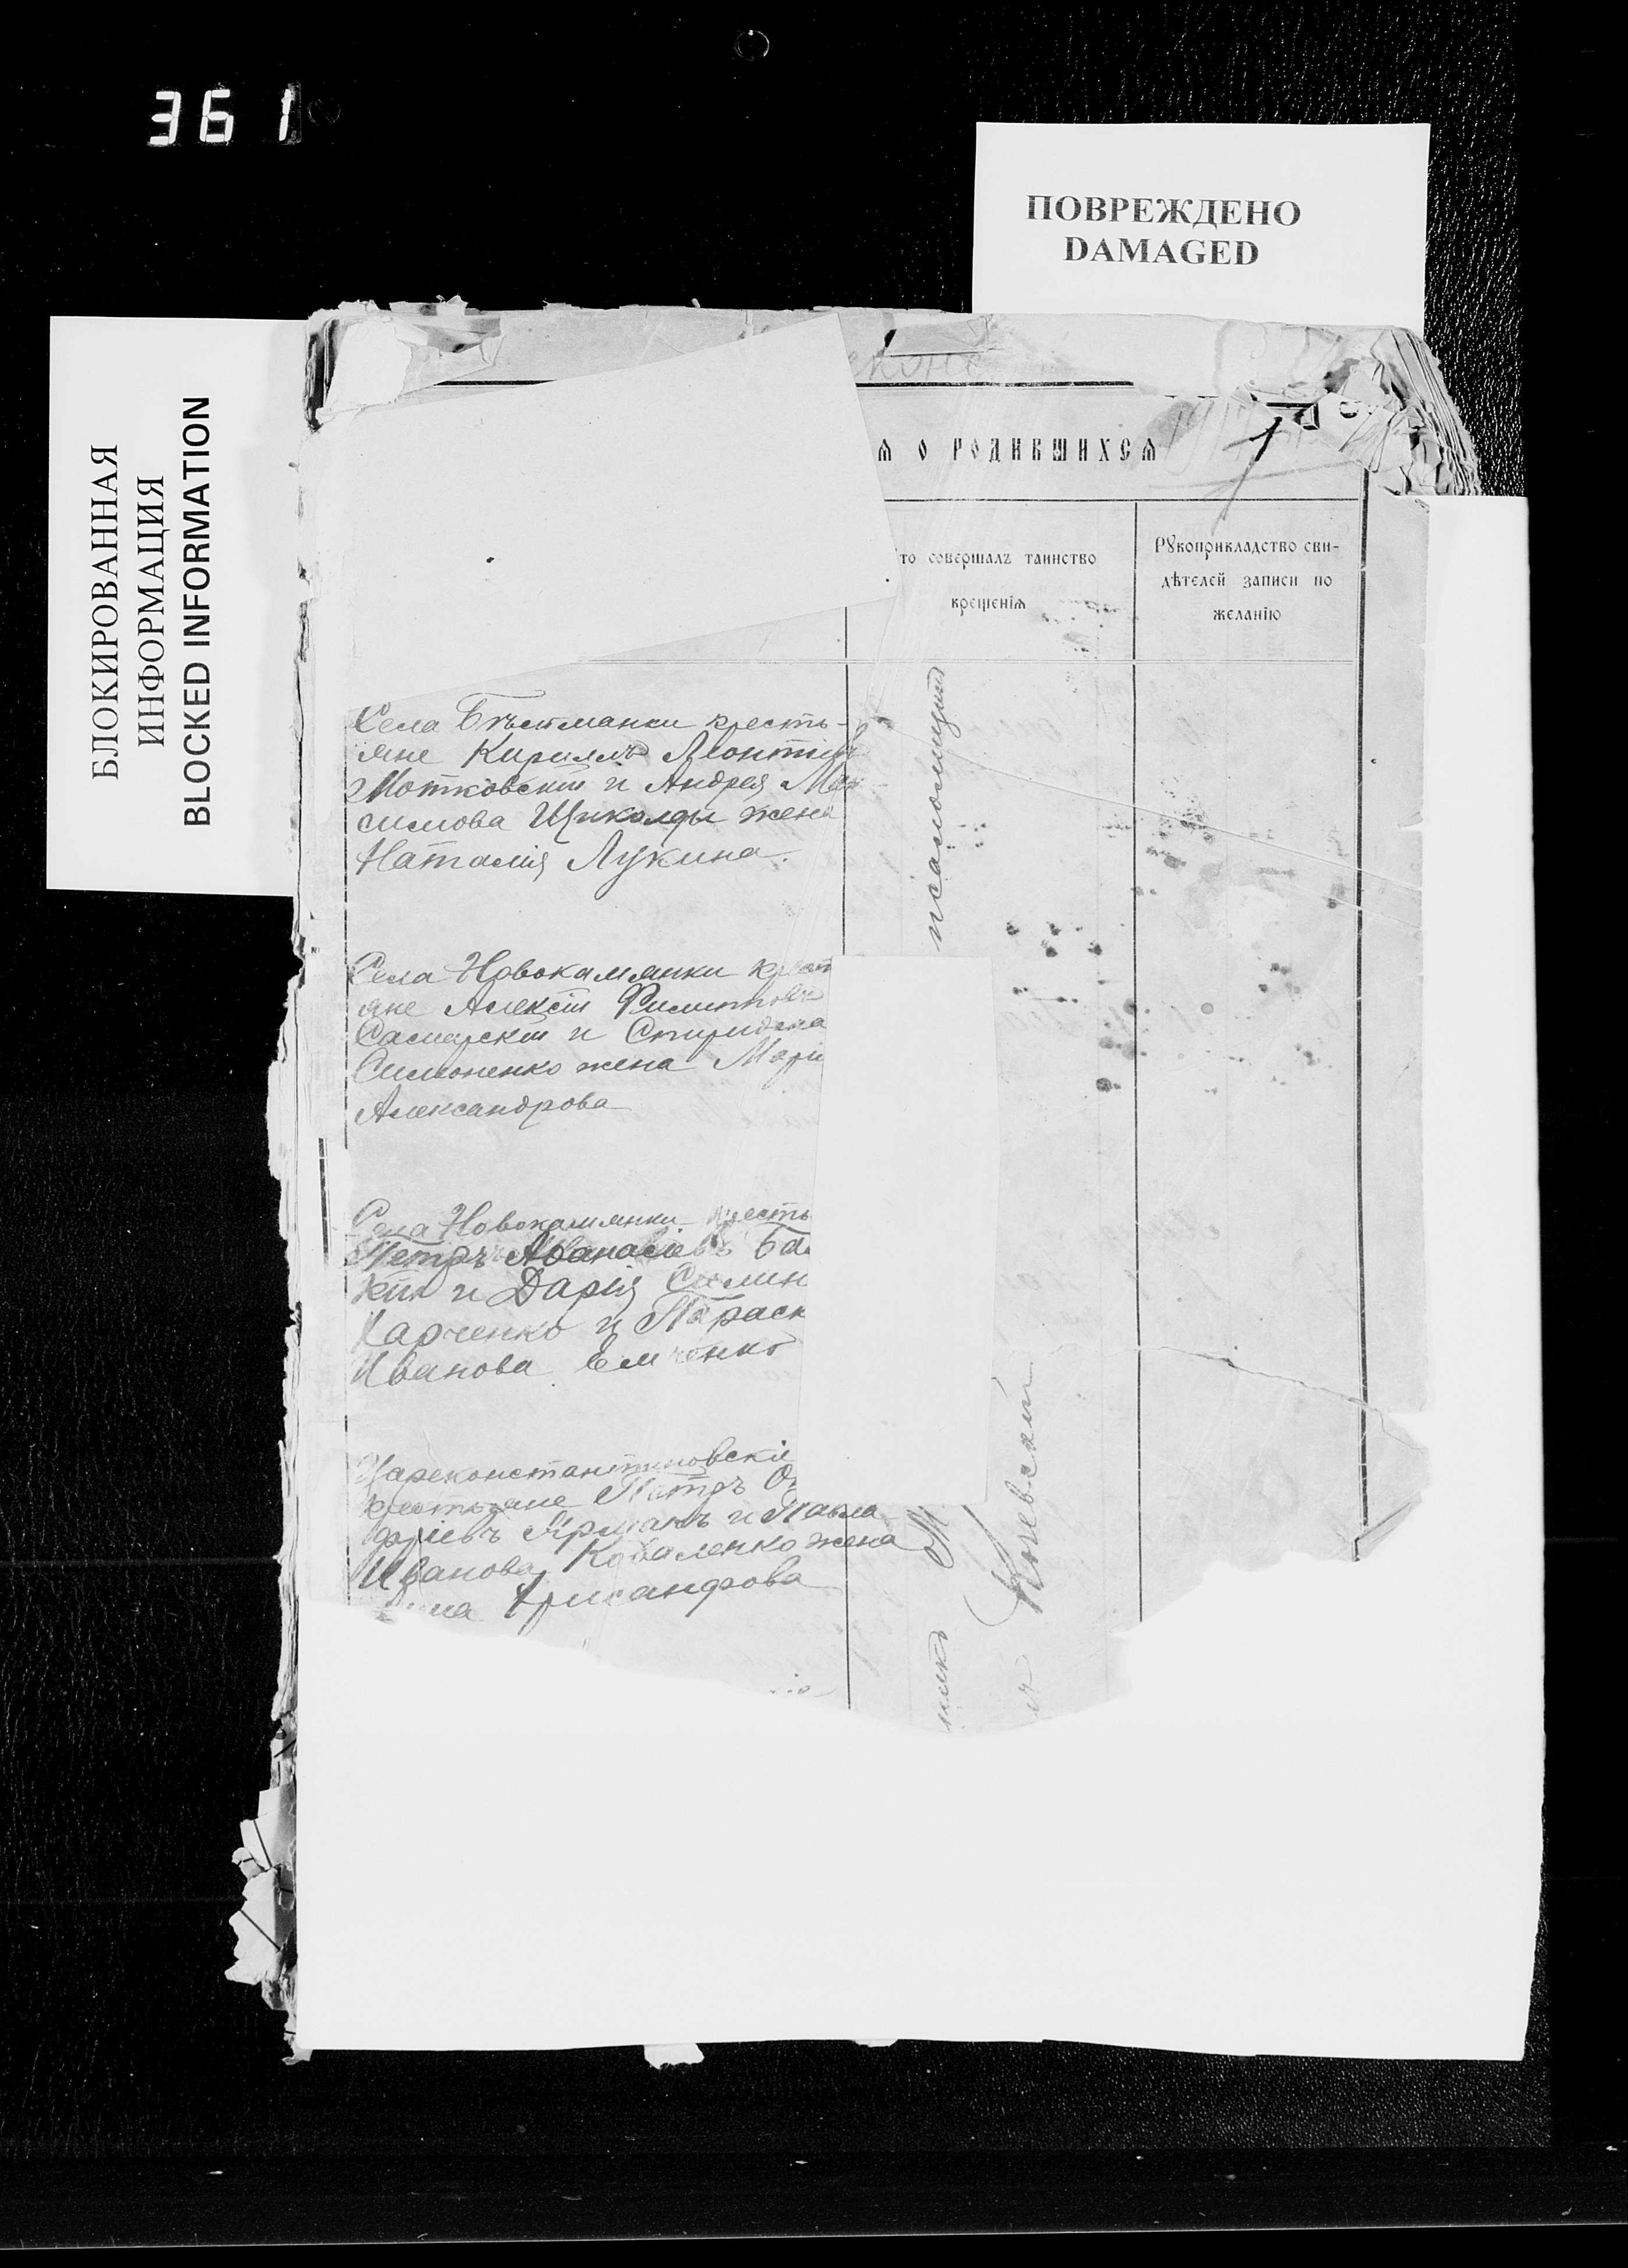 361
ПОВРЕЖДЕНО
DAMAGED
БЛОКИРОВАННАЯ
ИНФОРМАЦИЯ
BLOCKED INFORMATION
Ѧ О РОДИВШИХСѦ
то совершалъ таинство
крещенїѧ
Рꙋкоприкладство сви-
дѣтелей записи по
желанїю
Села кресть-
яне Кириллъ Леонтіевъ
Мотковскій и Андрея Мак
симова жена
Наталія Лукина.
Села Новокамянки крест
яне Алексій Филипповъ
Самарскій и Спиридона
Симоненко жена Марі
Александрова
Села Новокамянки кресть
Петръ Аѳанасіевъ Ба
кій и Дарія
Харченко и Параск
Иванова Емченко
Цареконстантиновскіе
крестьяне Петръ
Ярманъ и Павла
Иванова Коваленко жена
Хрисанфова
псаломщикъ
Кіяевскій